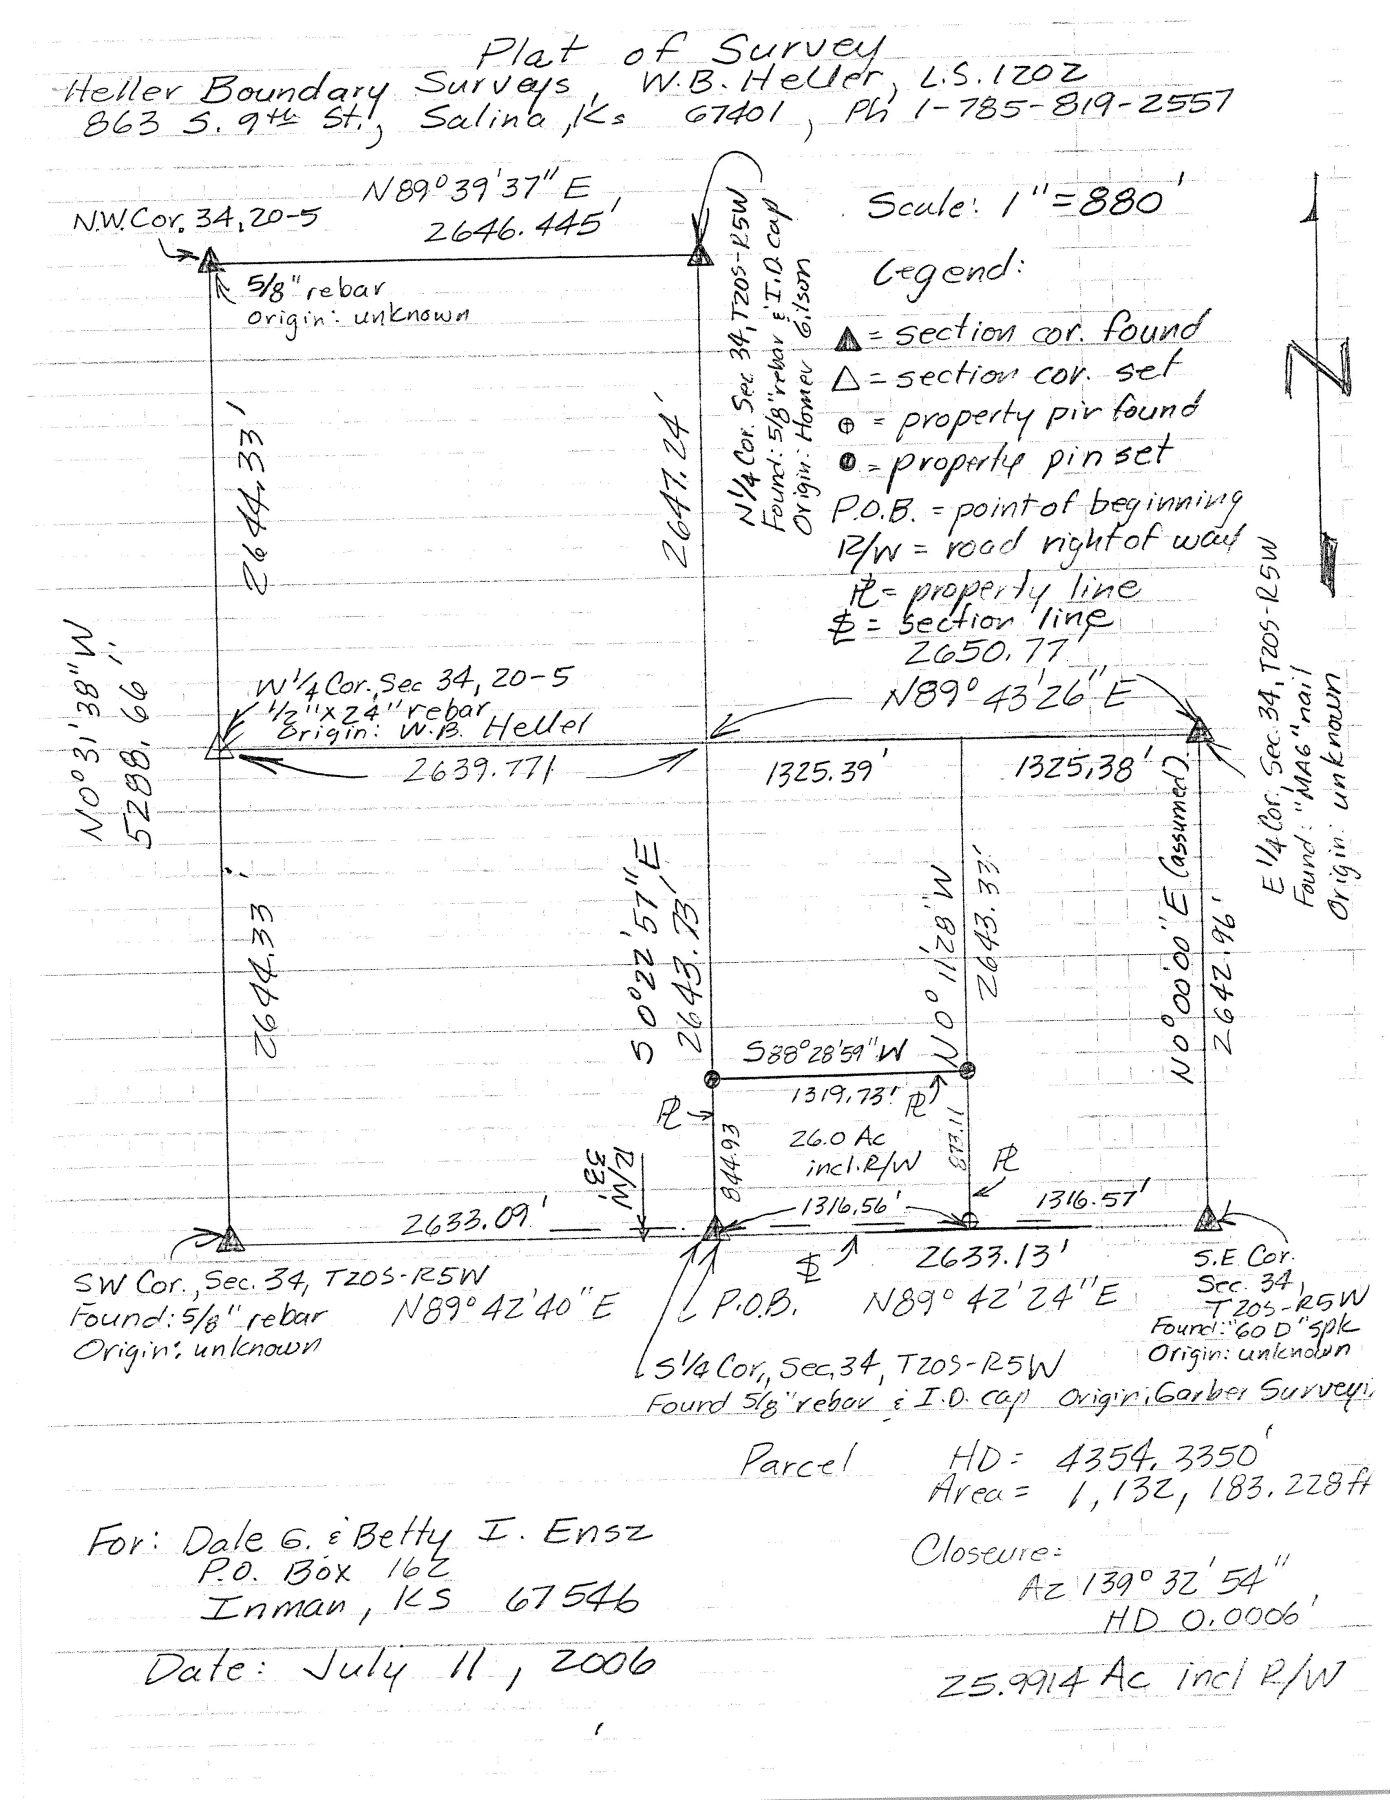 Plat of Survey
Heller Boundary Surveys, W.B. Heller, L.S. 1202
863 S. 9th St., Salina, Ks 67401, Ph 1-785-819-2557
N89°39'37"E,
2646.445'
N.W. Cor. 34, 20-5
5/8" rebar
origin: unknown
N 1/4 Cor. Sec. 34, T20S-R5W
Found: 5/8" rebar & I.D. cap
Origin: Homer Gilson
Scale: 1"=880'
Legend:
▲ = section cor. found
△ = section cor. set
⊕ = property pin found
● = property pin set
P.O.B. = point of beginning
R/W = road right of way
PL = property line
SL = section line
N
2644.33'
2647.24'
2650.77'
N89°43'26"E
N0°31'38"W
5288.66'
W 1/4 Cor., Sec 34, 20-5
1/2" x 24" rebar
Origin: W.B. Heller
2639.771
1325.39'
1325.38'
E 1/4 Cor., Sec. 34, T20S-R5W
Found: "MAG" nail
Origin: unknown
2644.33'
S0°22'57"E
2643.73'
N0°11'28"W
2643.33'
N0°00'00"E (assumed)
2642.96'
S88°28'59"W
1319.73'
PL
PL
26.0 Ac
incl. R/W
844.93
873.11
PL
R/W
33'
2633.09'
1316.56'
1316.57'
SL
2633.13'
SW Cor., Sec. 34, T20S-R5W
Found: 5/8" rebar
Origin: unknown
N89°42'40"E
P.O.B.
N89°42'24"E
S.E Cor.
Sec. 34,
T20S-R5W
Found: "60D" spk
Origin: unknown
S 1/4 Cor., Sec. 34, T20S-R5W
Found 5/8" rebar & I.D. cap Origin: Garber Surveyi
Parcel HD = 4354.3350'
Area = 1,132,183.228 ft
For: Dale G. & Betty I. Ensz
P.O. Box 162
Inman, KS 67546
Closeure =
Az 139°32'54"
HD 0.0006'
Date: July 11, 2006
25.9914 Ac incl R/W